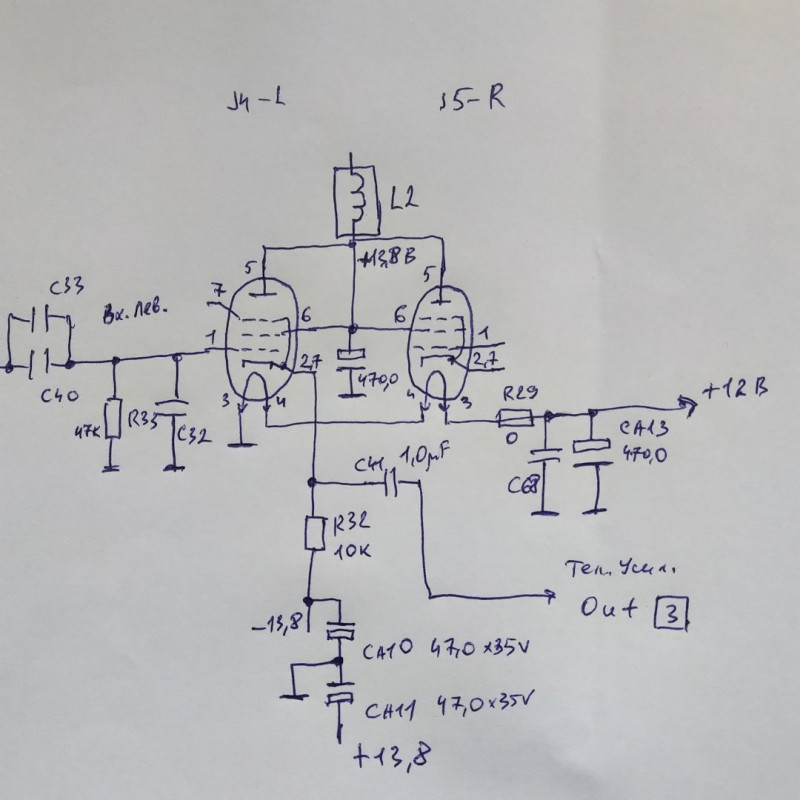 J4-L
J5-R
L2
+13,8В
5
5
C33
Вх. Лев.
7
6
6
1
1
2,7
2,7
470,0
C40
47К
R33
C32
3
4
4
3
R29
0
+12В
CA13
470,0
C68
C41
1,0µF
R32
10К
Тел. Усил.
Out 3
-13,8
CA10 47,0x35V
CA11 47,0x35V
+13,8